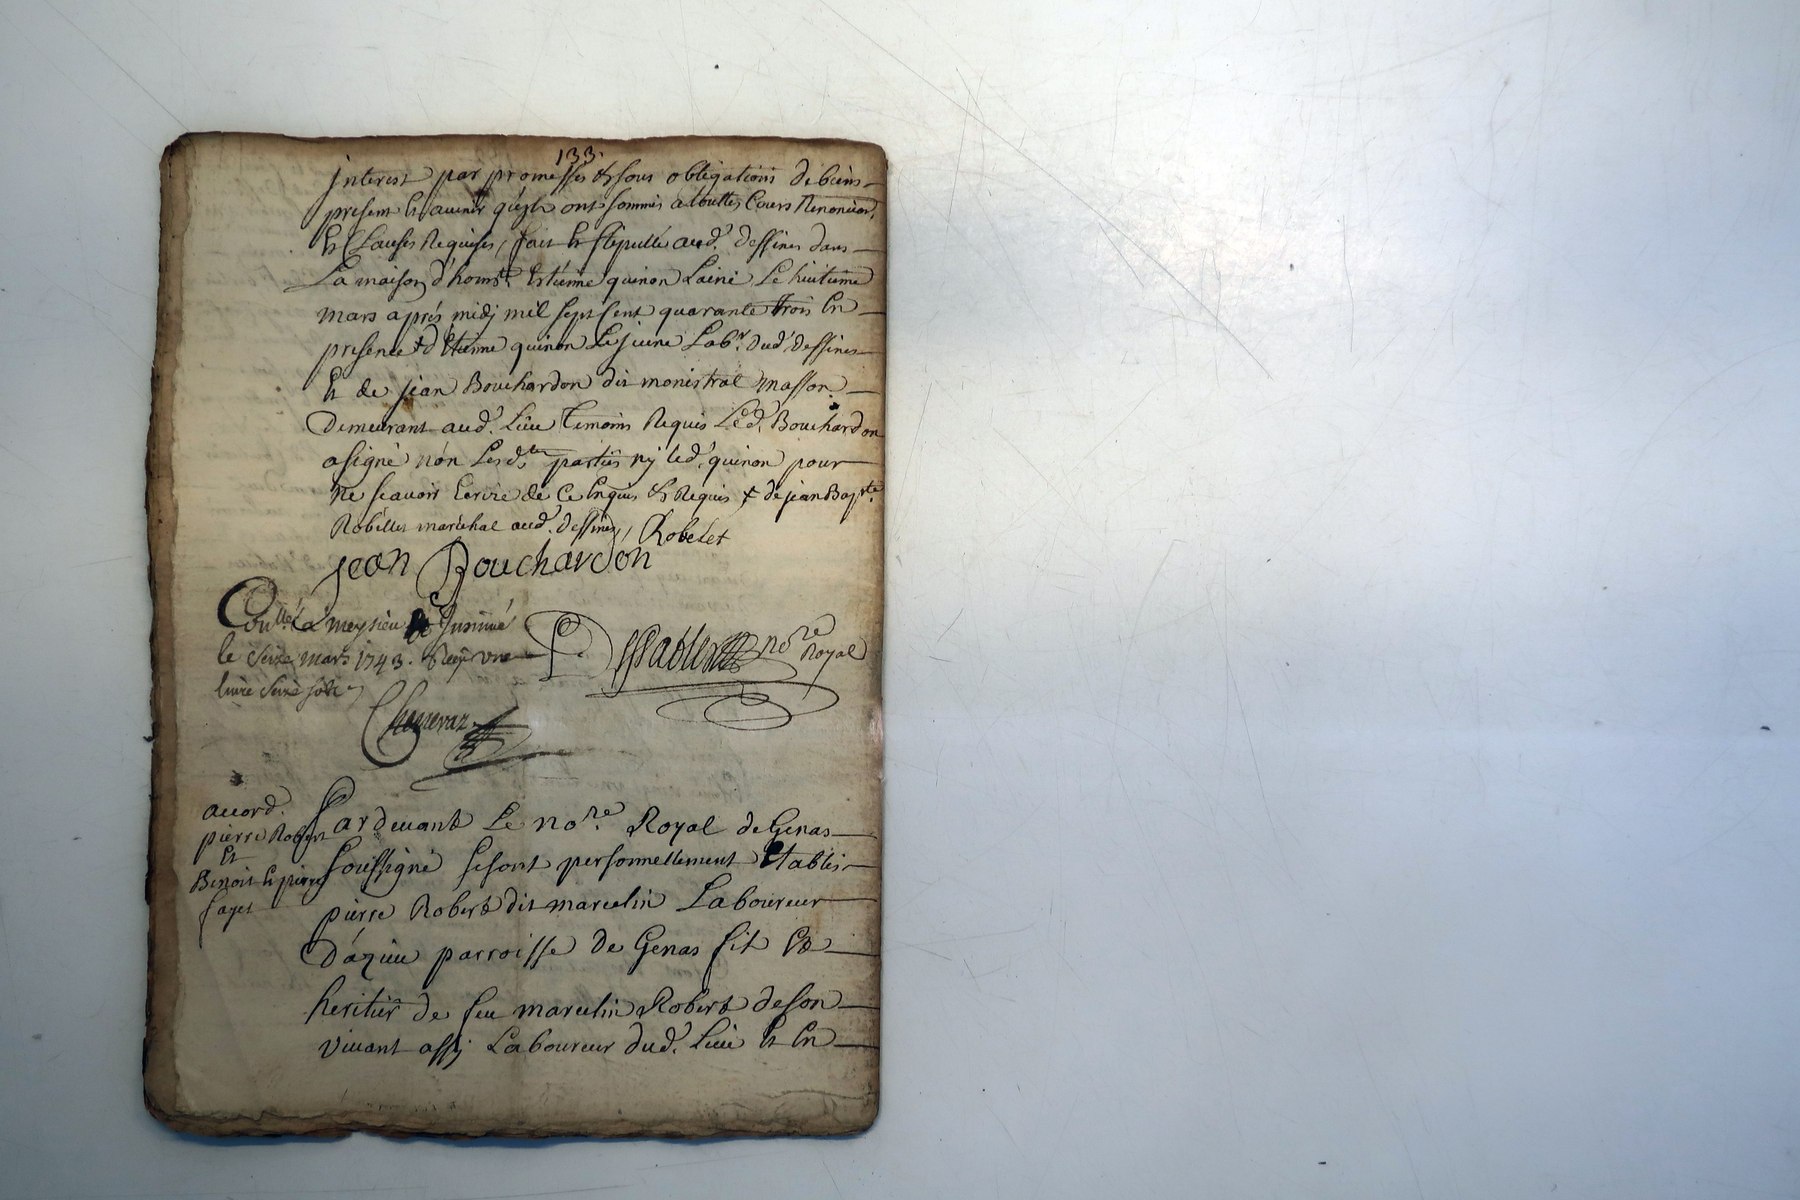 133.
interest par promesses & sous obligations de biens
present et avenir qu'ils ont sommis a touttes Cours Renonciaõn,
et Clauses Requises, fait et stipullé aud.' dessines dans
La maison d'hons.t Estienne quinon Lainé, Le huitieme
mars aprés midj mil sept Cent quarante trois En
presence + d'Etienne quinon Le jeune Lab.r dud.' dessines
Et de jean Bouchardon dit monistral masson
Demeurant aud.' Lieu temoins Requis Led.' Bouchardon
a signé non Lesd.tes parties nj led.' quinon pour
ne scavoir Ecrire de Ce Enquis & Requis + de jean Bap.te
Robellet maréchal aud.' dessines, Robelet
jean Bouchardon
Conllé a meysieu & Insinué
le seize mars 1743. Reçu une
livre seize sols
no.re Royal
Chenevaz
accord.
pierre Robert
Et
Benoit et pierre
fayet
Pardevant Le no.re Royal de Genas
soussigné se sont personnellement Etablis
pierre Robert dit marcelin Laboureur
D'azieu parroisse de Genas fils Et
heritier de feu marcelin Robert de son
vivant assj Laboureur dud.' Lieu Et En